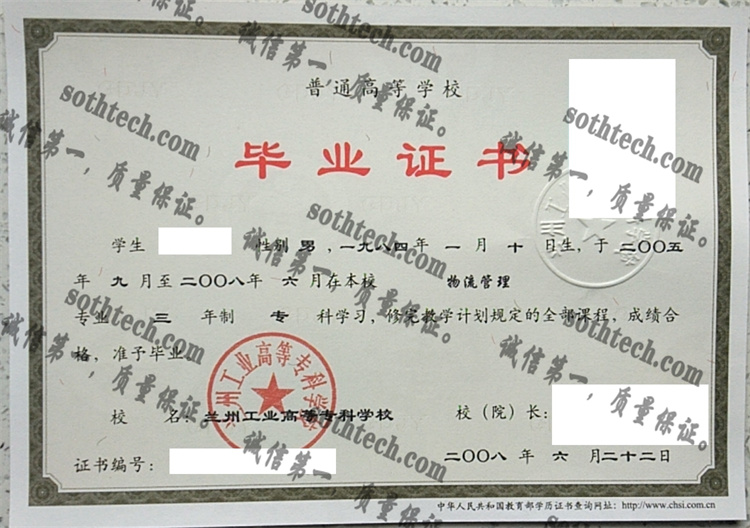 普通高等学校
毕业证书
学生 性别 男 ,一九八四年 一 月 十 日生, 于 二〇〇五
年 九 月至 二〇〇八年 六 月在本校 物流管理
专业 三 年制 专 科学习, 修完教学计划规定的全部课程, 成绩合
格, 准予毕业
兰州工业高等专科学校
校 名: 兰州工业高等专科学校 校（院）长:
证书编号: 二〇〇八 年 六 月二十二日
中华人民共和国教育部学历证书查询网址: http://www.chsi.com.cn
sothtech.com
诚信第一，质量保证。
sothtech.com
诚信第一，质量保证。
sothtech.com
诚信第一，质量保证。
sothtech.com
诚信第一，质量保证。
sothtech.com
诚信第一，质量保证。
sothtech.com
诚信第一，质量保证。
sothtech.com
诚信第一，质量保证。
sothtech.com
诚信第一，质量保证。